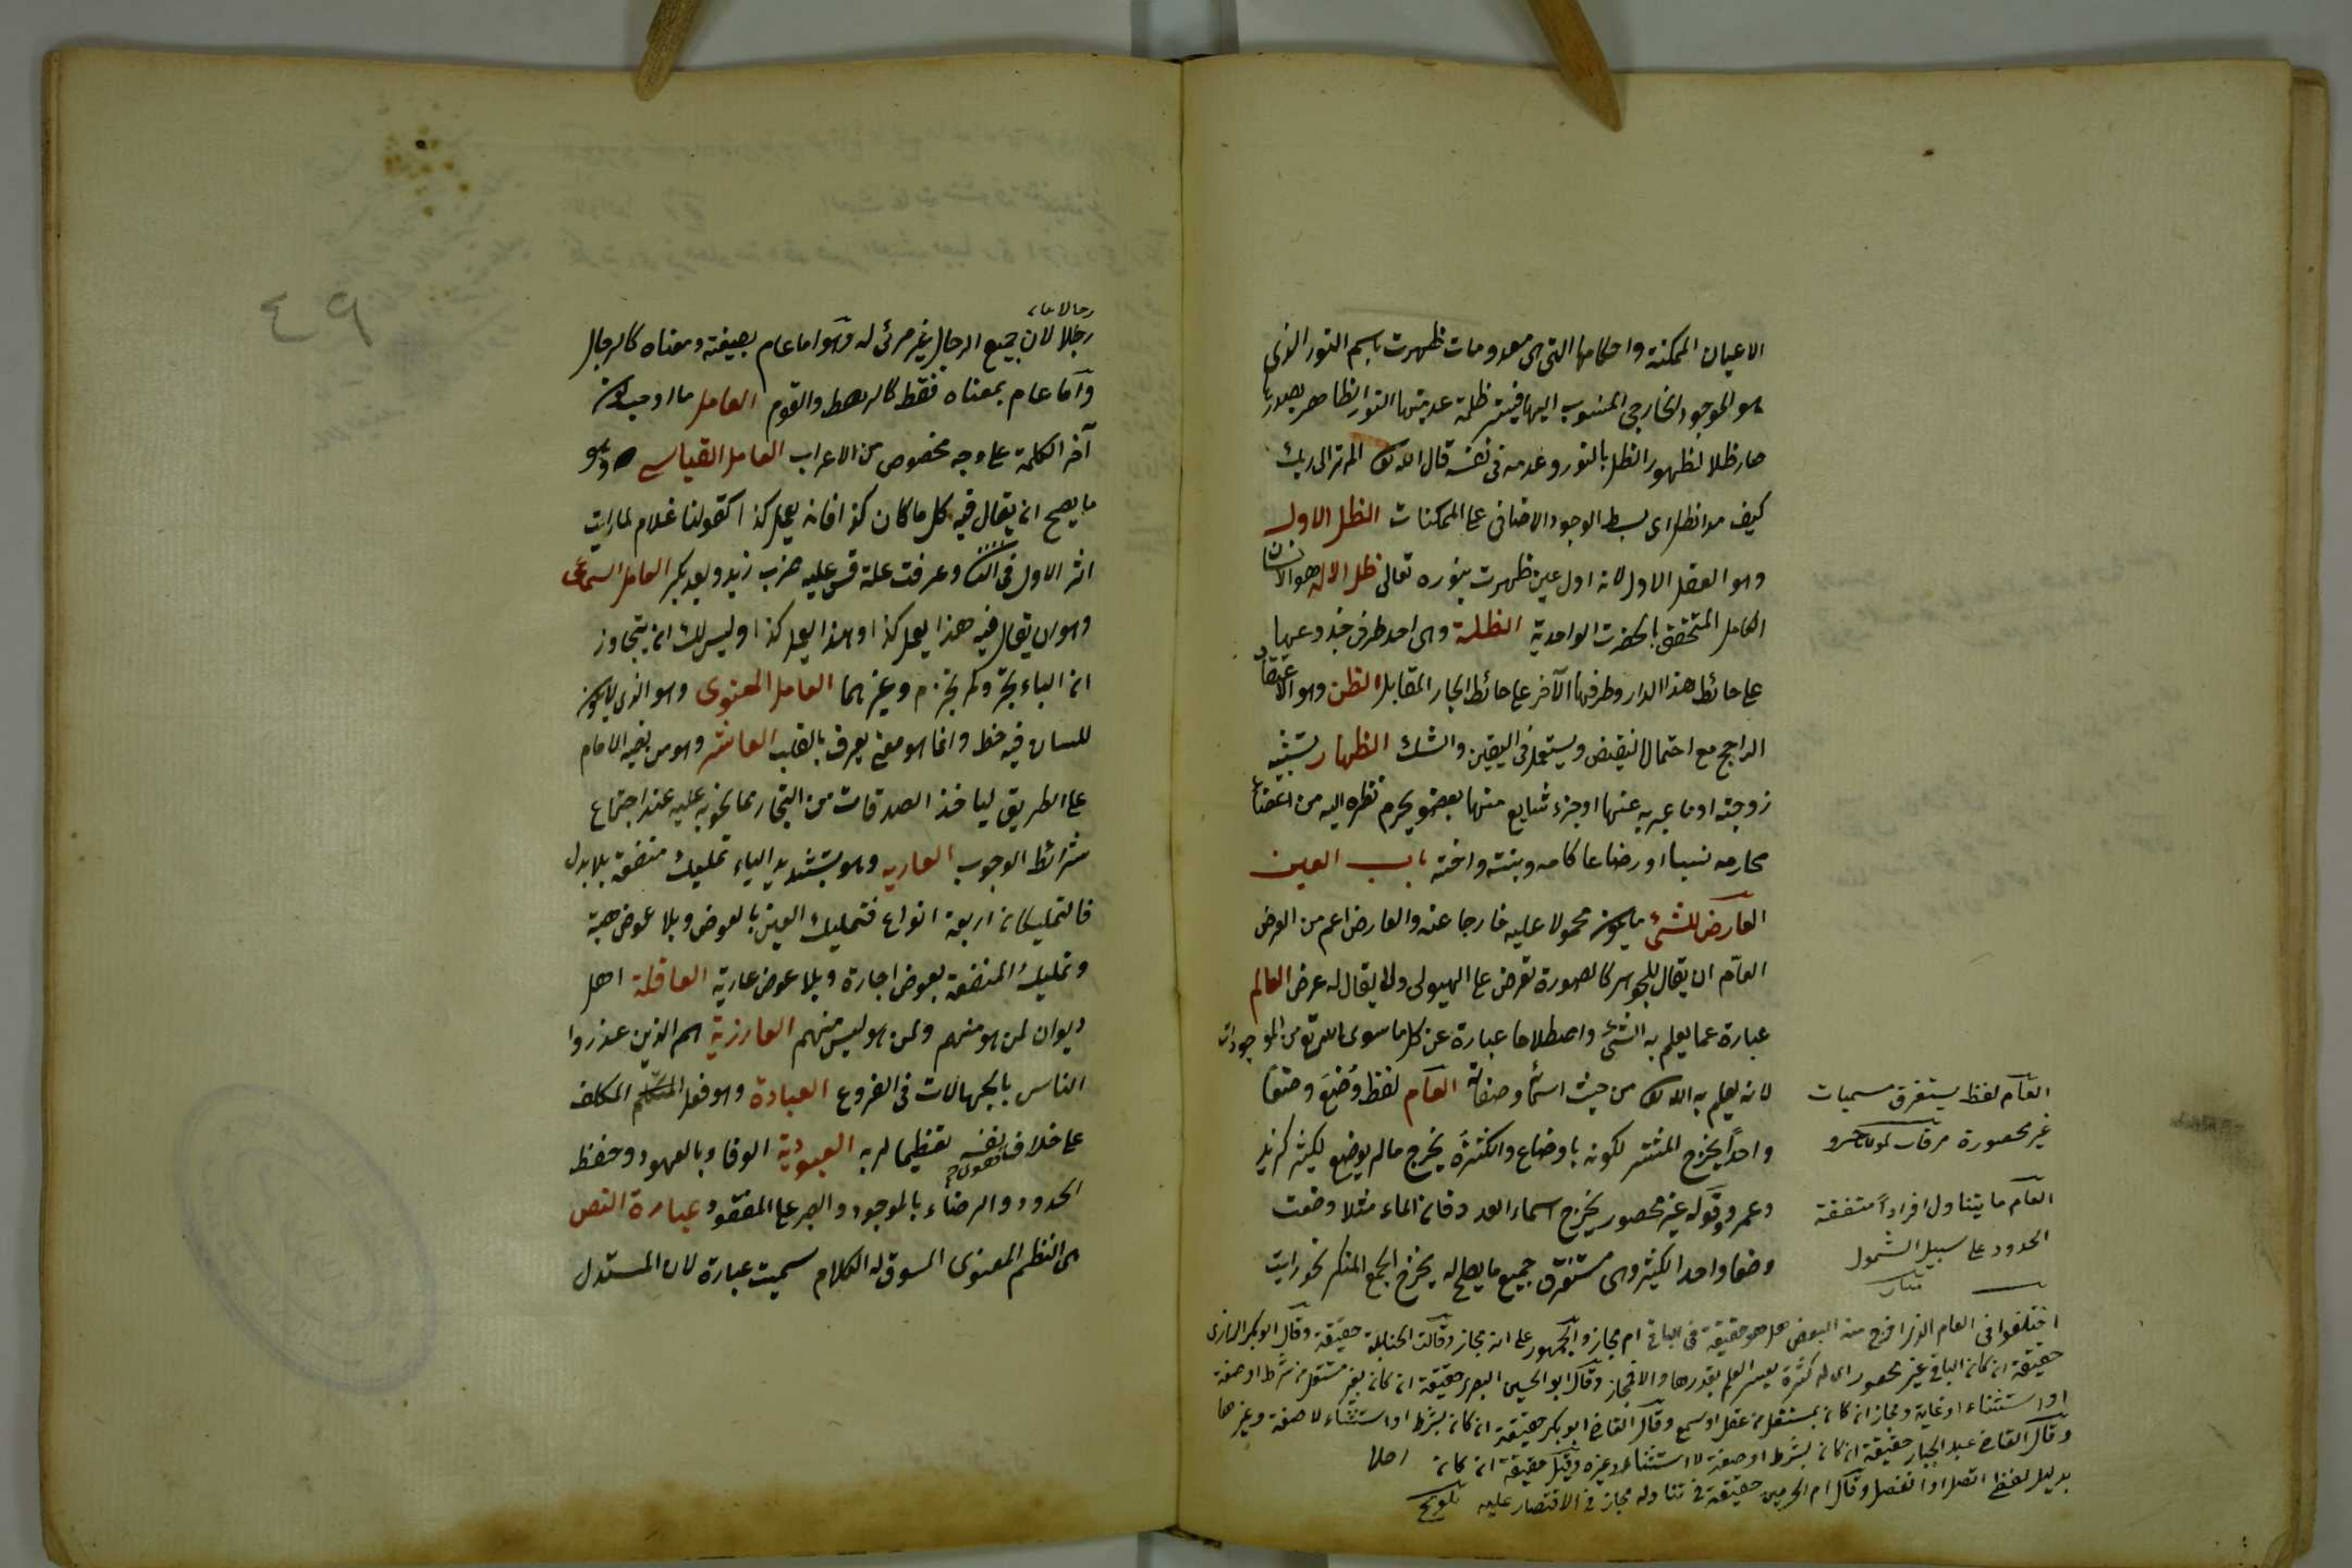 الاعيان الممكنة واحكامها التى هى معدومات ظهرت باسم النور الذى
هو الوجود الخارجى المنسوب اليها فيستر ظلمة عدميتها النور الظاهر بصورها
صار ظلا لظهور الظل بالنور وعدمه فى نفسه قال الله تع الم تر الى ربك
كيف مد الظل اى بسط الوجود الاضافى على الممكنات الظل الاول
وهو العقل الاول لانه اول عين ظهرت بنوره تعالى ظل الاله هو الانسان
الكامل المتحقق بالحضرت الواحدية الظلة وهى احد طرفى جذوعها
على حائط هذا الدار وطرفها الآخر على حائط الجار المقابل الظن وهو الاعتقاد
الراجح مع احتمال النقيض ويستعمل فى اليقين والشك الظهار تشبيه
زوجته او ما عبر به عنها او جزء شايع منها بعضو يحرم نظره اليه من اعضاء
محارمه نسبا او رضاعا كامه وبنته واخته باب العين
العارض للشئ ما يكون محمولا عليه خارجا عنه والعارض اعم من العرض
العام ان يقال للجوهر كالصورة تعرض على الهيولى ولا يقال له عرض العالم
عبارة عما يعلم به الشئ واصطلاحا عبارة عن كل ما سوى الله تع من الموجودات
لانه يعلم به الله تع من حيث اسمائه وصفاته العام لفظ وُضِعَ وضعا
واحداً يخرج المشترك لكونه باوضاع والكثيرة يخرج مالم يوضع لكثير كزيد
وعمرو وقوله غير محصور يخرج اسماء العدد فان الماء مثلا وضعت
وضعا واحدا لكثير وهى مستغرق جميع ما يصلح له يخرج الجمع المنكر نحو رايت
العام لفظ يستغرق مسميات
غير محصورة مرقات لمولا خسرو
العام ما يتناول افراداً متفقة
الحدود على سبيل الشمول
منار
اختلفوا فى العام الذى اخرج منه البعض هل هو حقيقة فى الباقى ام مجاز والجمهور على انه مجاز وقالت الحنابلة حقيقة وقال ابو بكر الرازى
حقيقة ان كان الباقى غير محصور اى له كثرة يعسر العلم بقدرها والا فمجاز وقال ابو الحسين البصرى حقيقة ان كان بغير مستقل من شرط او صفة
او استثناء او غاية ومجاز ان كان بمستقل من عقل او سمع وقال القاضى ابو بكر حقيقة ان كان بشرط او استثناء لا صفة وغيرها
وقال القاضى عبد الجبار حقيقة ان كان بشرط او صفة لا استثناء وغيره وقيل حقيقة ان كان
بدليل لفظى اتصل او انفصل وقال امام الحرمين حقيقة فى تناوله مجاز فى الاقتصار عليه تلويح
رجلا لان جميع الرجال غير مرئى له وهو اما عام بصيغته ومعناه كالرجال
واما عام بمعناه فقط كالرهط والقوم العامل ما اوجب كون
آخر الكلمة على وجه مخصوص من الاعراب العامل القياسى وهو
ما يصح ان يقال فيه كل ما كان كذا فانه يعمل كذا كقولنا غلام لما رايت
اثر الاول فى الثانى وعرفت علة قس عليه ضرب زيد وبعد بكر العامل السماعى
وهو ان يقال فيه هذا يعمل كذا وهذا يعمل كذا وليس لك ان يتجاوز
ان الباء يجر ولم يجزم وغيرهما العامل المعنوى وهو الذى لا يكون
للسان فيه حظ وانما هو معنى يعرف بالقلب العاشر وهو من نصبه الامام
على الطريق لياخذ الصدقات من التجار مما يمرون به عليه عند اجتماع
شرائط الوجوب العاريه وهو بتشديد الياء تمليك منفعة بلا بدل
فالتمليكات اربعة انواع فتمليك العين بالعوض وبلا عوض هبة
وتمليك المنفعة بعوض اجارة وبلا عوض عارية العاقلة اهل
ديوان لمن هو منهم ولمن هو ليس منهم العارزية هم الذين عذروا
الناس بالجهالات فى الفروع العبادة وهو فعل المكلف
على خلاف نفسه تعظيما لربه العبودية الوفاء بالعهود وحفظ
الحدود والرضاء بالموجود والصبر على المفقود عبارة النص
هى النظم المعنوى المسوق له الكلام سميت عبارة لان المستدل